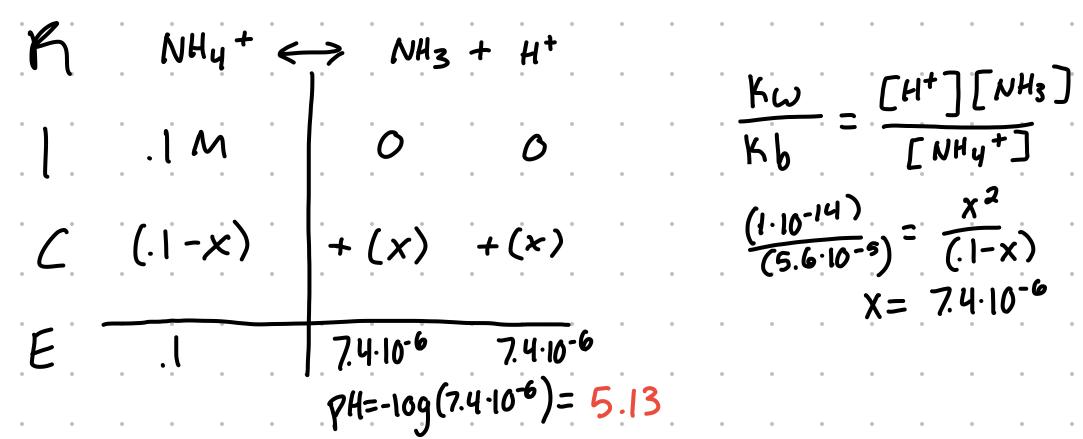 R NH₄⁺ ⟷ NH₃ + H⁺
I .1 M 0 0
C (.1-x) +(x) +(x)
E .1 7.4·10⁻⁶ 7.4·10⁻⁶
pH=-log(7.4·10⁻⁶)= 5.13
Kw/Kb = [H⁺][NH₃]/[NH₄⁺]
(1·10⁻¹⁴)/(5.6·10⁻⁵) = x²/(.1-x)
x= 7.4·10⁻⁶